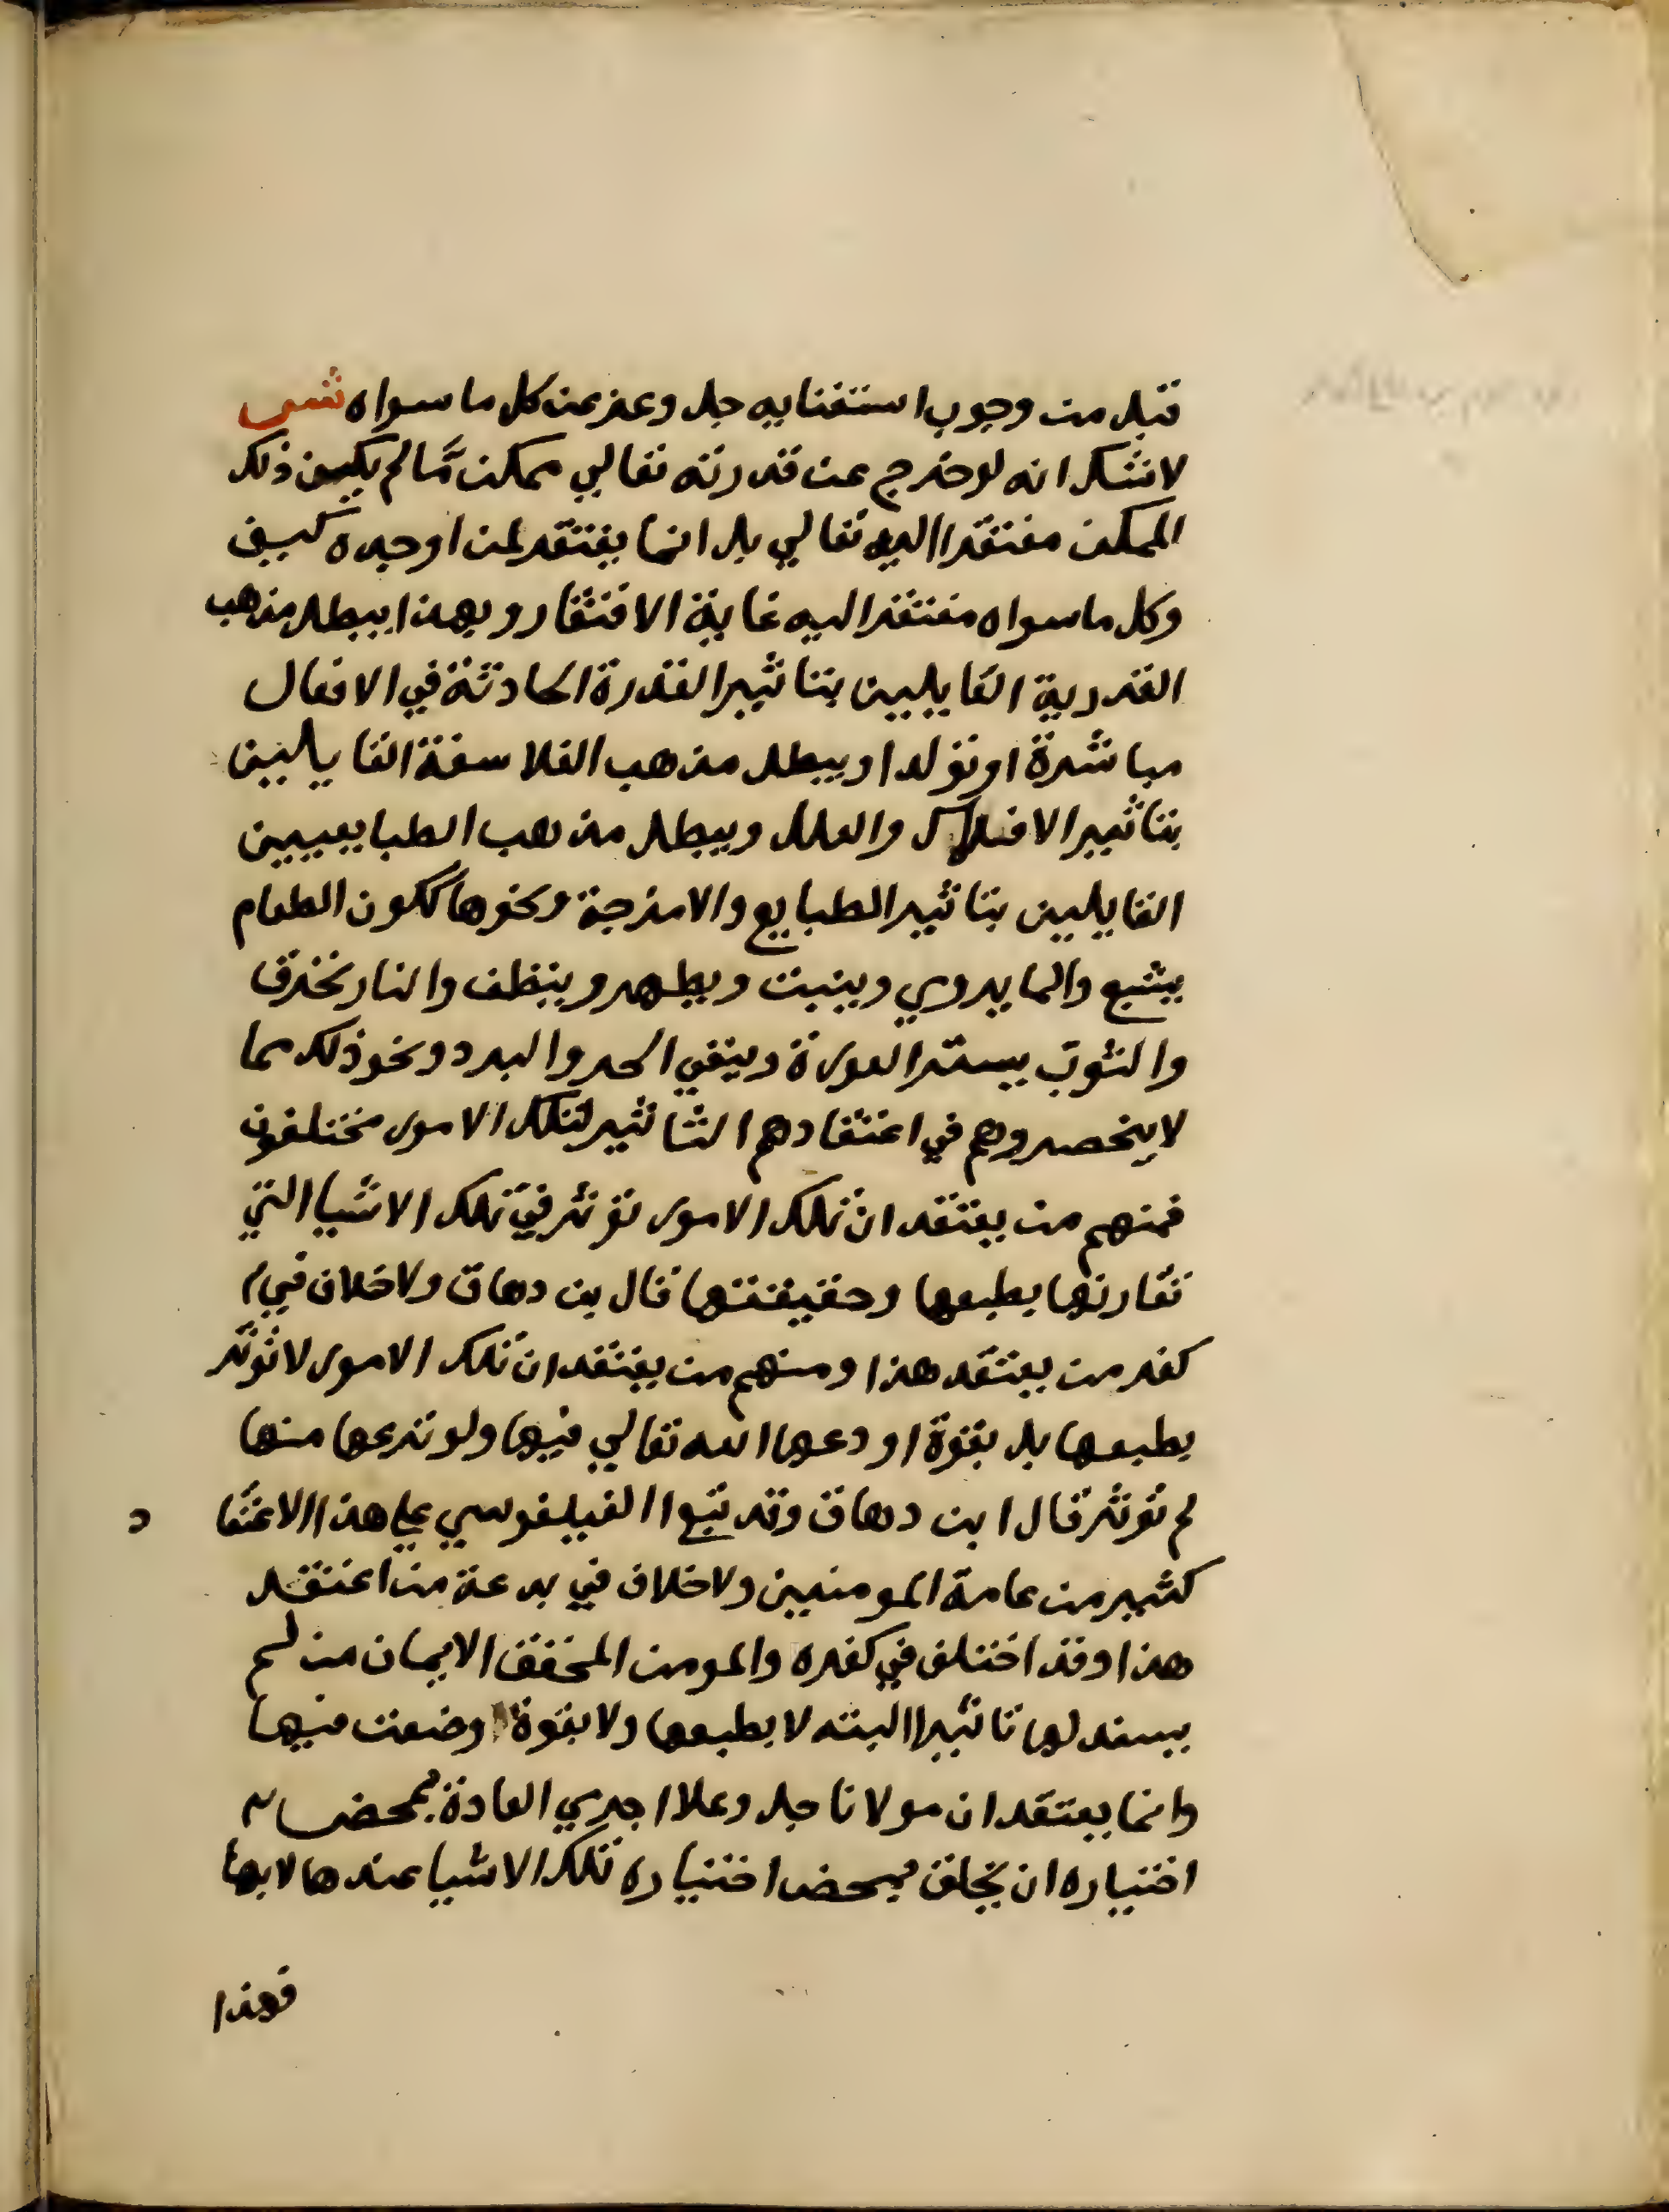 قبل من وجوب استغنايه جل وعز عن كل ما سواه ش
لاشك انه لو خرج عن قدرته تعالي ممكن مّا لم يكن ذلك
الممكن مفتقرا اليه تعالي بل انما يفتقر لمن اوجده كيف
وكل ما سواه مفتقر اليه غاية الافتقار وبهذا يبطل مذهب
القدرية القايلين بتاثير القدرة الحادثة في الافعال
مباشرة او تولدا ويبطل مذهب الفلاسفة القايلين
بتاثير الافلاك والعلل ويبطل مذهب الطبايعيين
القايلين بتاثير الطبايع والامزجة ونحوها ككون الطعام
يشبع والما يروي وينبت ويطهر وينظف والنار تحرق
والثوب يستر العورة ويقي الحر والبرد ونحو ذلك مما
لا ينحصر وهم في اعتقادهم التاثير لتلك الامور مختلفون
فمنهم من يعتقد ان تلك الامور توثر في تلك الاشيا التي
تقارنها بطبعها وحقيقتها قال بن دهاق ولا خلاف في
كفر من يعتقد هذا ومنهم من يعتقد ان تلك الامور لا توثر
بطبعها بل بقوة اودعها الله تعالي فيها ولو نزعها منها
لم توثر قال ابن دهاق وقد تبع الفيلفوسي علي هذا الاعتقا د
كثير من عامة المومنين ولا خلاف في بدعة من اعتقد
هذا وقد اختلف في كفره والمومن المحقق الايمان من لم
يسند لها تاثيرا البته لا بطبعها ولا بقوة وضعت فيها
وانما يعتقد ان مولانا جل وعلا اجري العادة بمحض
اختياره ان يخلق بمحض اختياره تلك الاشيا عندها لا بها
فهذا